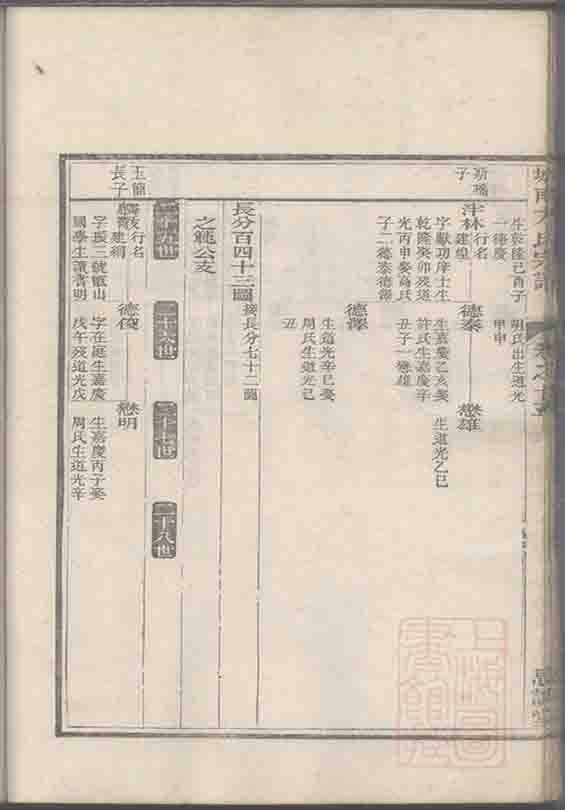 生乾隆己酉子
一德慶
胡氏出生道光
甲申
子
泮林
行名
建皇
字獻功庠士生
乾隆癸卯殁道
光丙申娶高氏
子二德泰德澤
德泰
生嘉慶乙亥娶
許氏生嘉慶辛
丑子一懋雄
懋雄
生道光乙巳
德澤
生道光辛巳娶
周氏生道光己
丑
長分百四十三圖
接長分七十二圖
之範公支
二十五世
二十六世
二十七世
二十八世
玉簡
長子
行名
建綱
字振三號甑山
國學生讀書明
德俊
字在庭生嘉慶
戊午殁道光戊
懋明
生嘉慶丙子娶
周氏生道光辛
上海圖書館藏